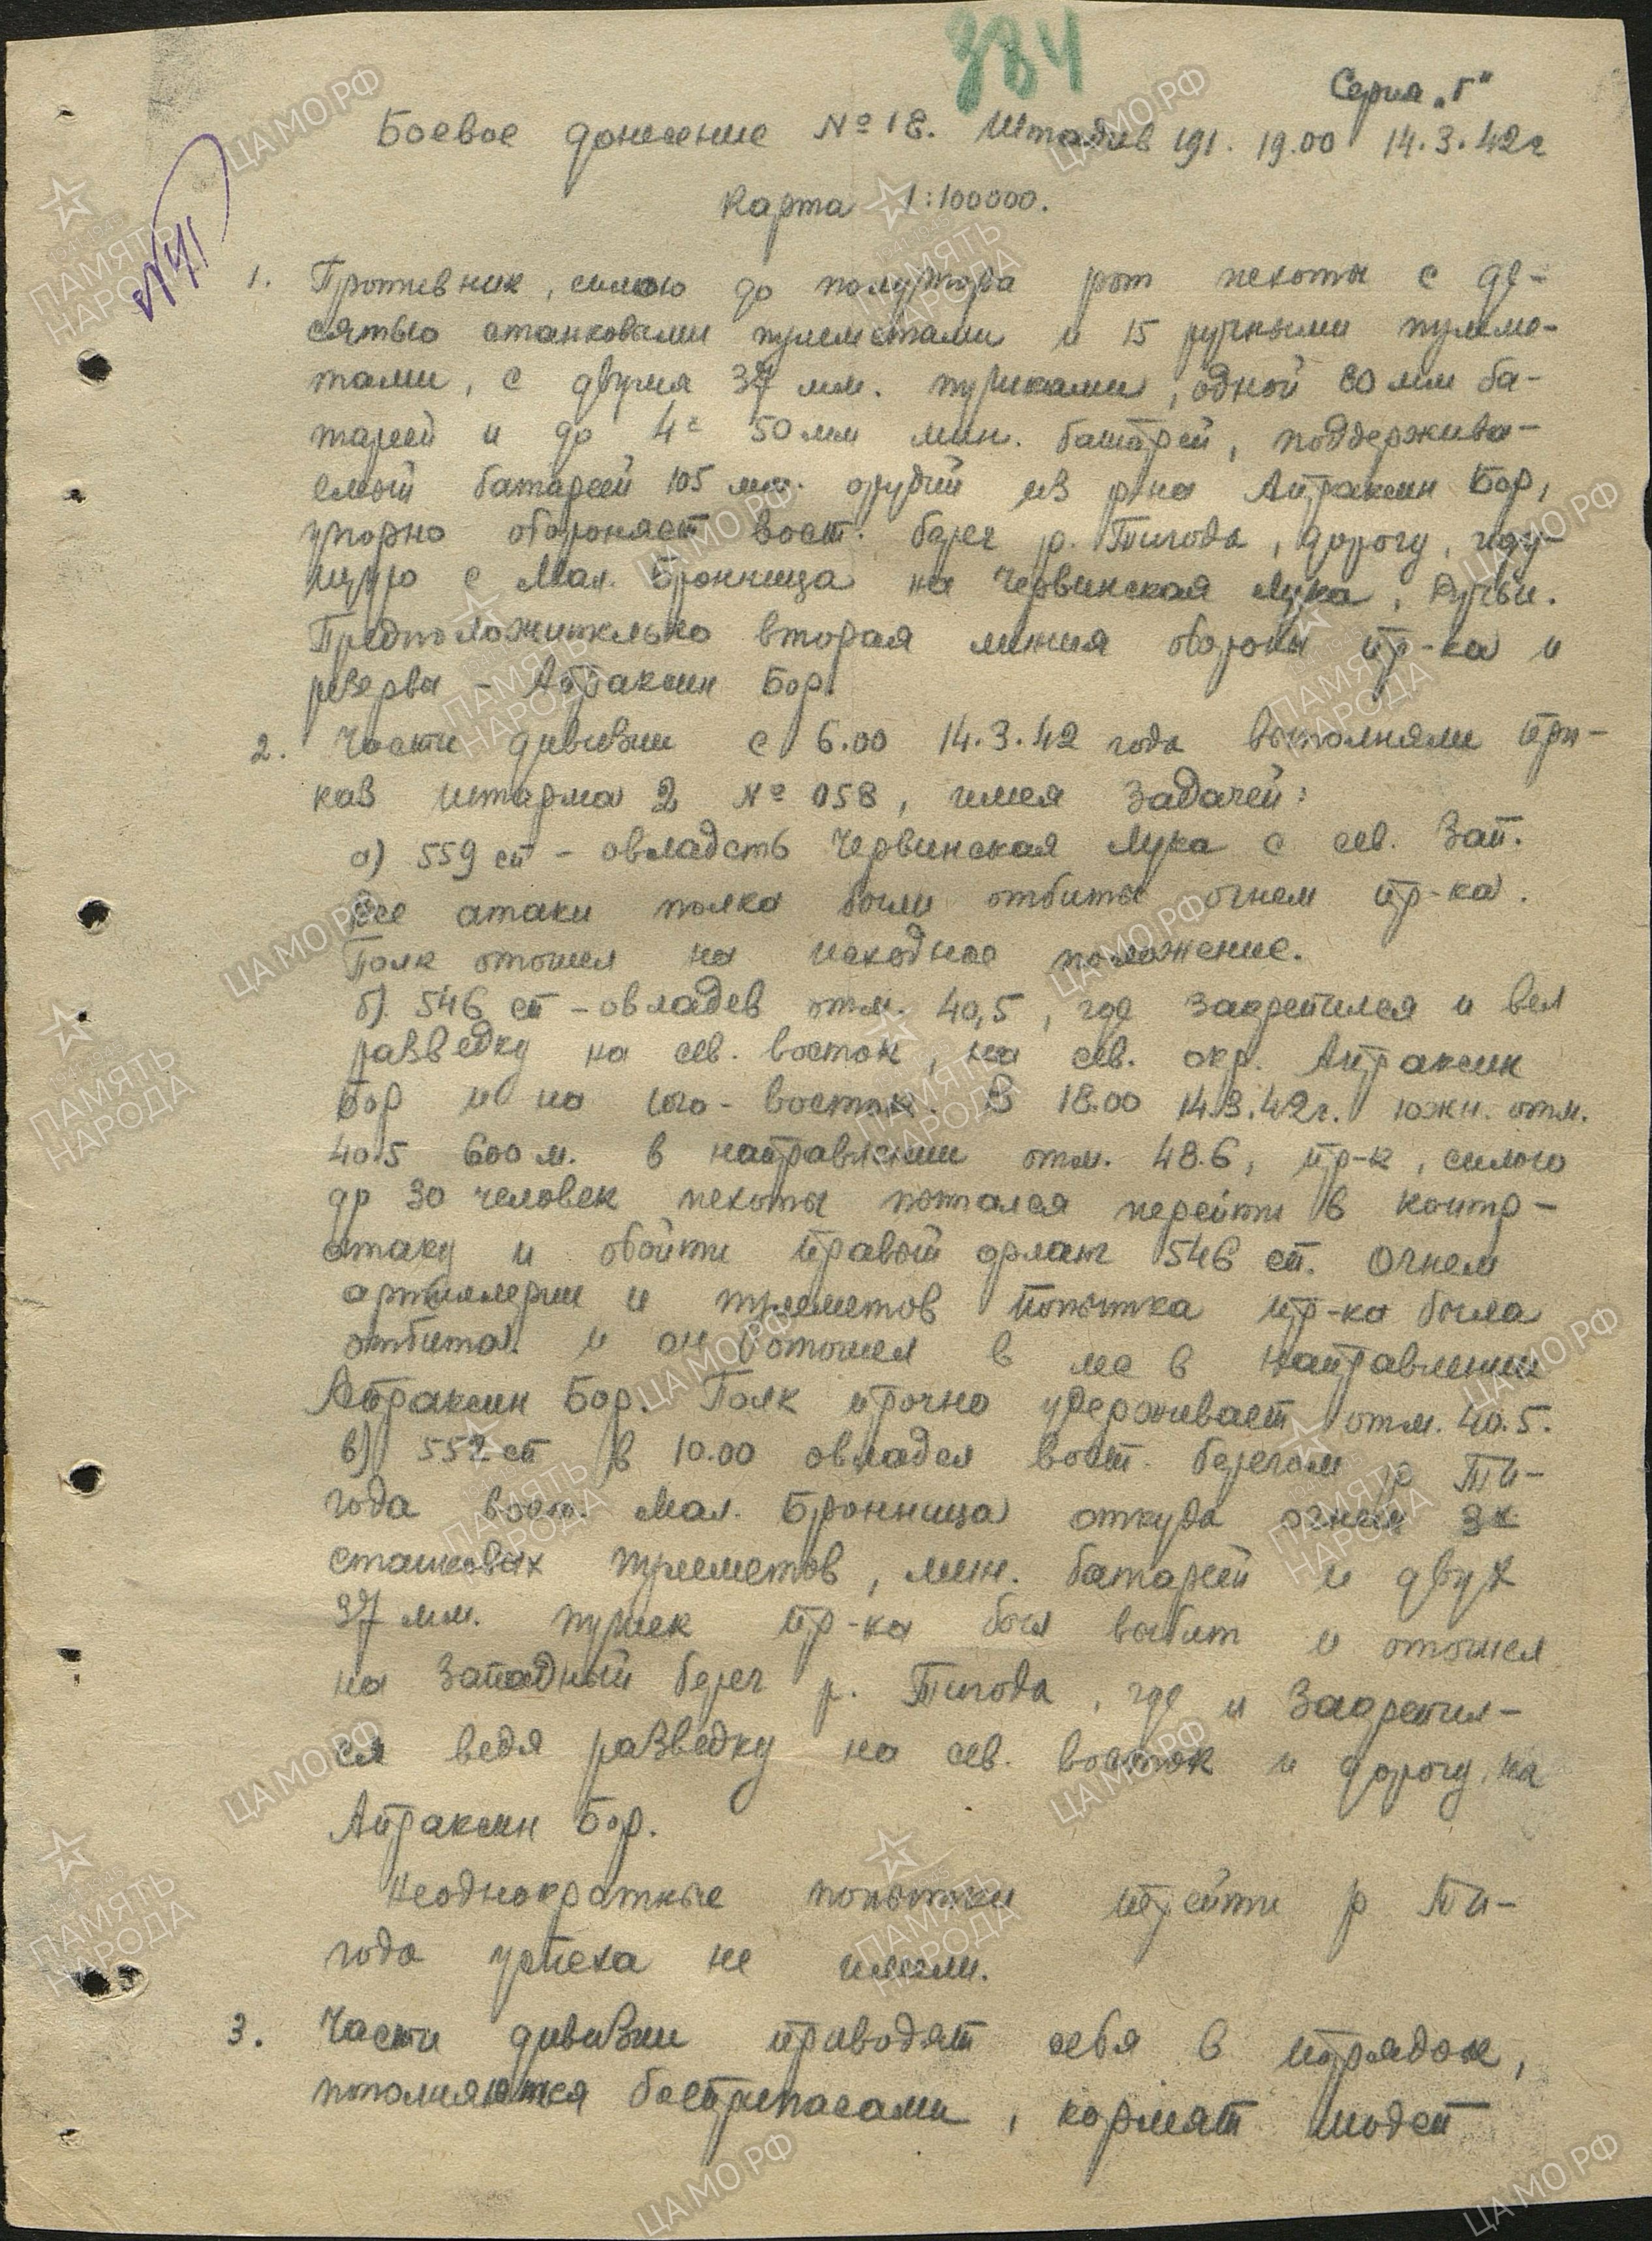 334
Серия „Г"
Боевое донесение № 18. Штадив 191. 19.00 14.3.42г
Карта 1:100000.
№41
1. Противник, силою до полутора рот пехоты с де-
сятью станковыми пулеметами и 15 ручными пулеме-
тами, с двумя 37 мм. пушками, одной 80 мм ба-
тареей и до 4х 50 мм мин. батарей, поддержива-
емый батареей 105 мм. орудий из р-на Апраксин Бор,
упорно обороняет вост. берег р. Тигода, дорогу, иду-
щую с Мал. Бронница на Червинская Лука, Ручьи.
Предположительно вторая линия обороны пр-ка и
резервы - Апраксин Бор.
2. Части дивизии с 6.00 14.3.42 года выполняли при-
каз штарма 2 № 058, имея задачей:
а) 559 сп - овладеть Червинская Лука с сев. зап.
Все атаки полка были отбиты огнем пр-ка.
Полк отошел на исходное положение.
б). 546 сп - овладев отм. 40,5, где закрепился и вел
разведку на сев. восток, на сев. окр. Апраксин
Бор и на юго-восток. В 18.00 14.3.42г. южн. отм.
40.5 600 м. в направлении отм. 48.6, пр-к, силою
до 30 человек пехоты пытался перейти в контр-
атаку и обойти правый фланг 546 сп. Огнем
артиллерии и пулеметов попытка пр-ка была
отбита и он отошел в лес в направлении
Апраксин Бор. Полк прочно удерживает отм. 40.5.
в) 552 сп в 10.00 овладел вост. берегом р Ти-
года вост. Мал. Бронница откуда огнем 3х
станковых пулеметов, мин. батарей и двух
37 мм. пушек пр-ка был выбит и отошел
на западный берег р. Тигода, где и закрепил-
ся ведя разведку на сев. восток и дорогу на
Апраксин Бор.
Неоднократные попытки перейти р Ти-
года успеха не имели.
3. Части дивизии приводят себя в порядок,
пополняются боеприпасами, кормят людей
ЦАМО РФ
ПАМЯТЬ НАРОДА